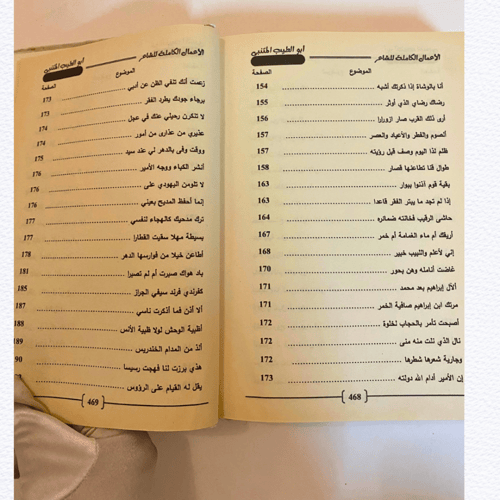 الأعمال الكاملة للشاعر أبو الطيب المتنبي
الموضوع الصفحة
أنا بالوشاة إذا ذكرتك أشبه 154
رضاك رضاي الذي أوثر 155
أرى ذلك القرب صار ازورارا 156
أنصوم والفطر والأعياد والعصر 157
ظلم لذا اليوم وصف قبل رؤيته 157
طوال قنا تطاعنها قصار 158
بقية قوم آذنوا ببوار 163
إذا لم تجد ما يبتر الفقر قاعدا 163
حاشى الرقيب فخانته ضمائره 164
أريقك أم ماء الغمامة أم خمر 167
إني لأعلم واللبيب خبير 168
غاضت أنامله وهن بحور 170
ألآل إبراهيم بعد محمد 171
مرتك ابن إبراهيم صافية الخمر 171
أصبحت تأمر بالحجاب لخلوة 172
نال الذي نلت منه منى 172
وجارية شعرها شطرها 172
إن الأمير أدام الله دولته 173
468
الأعمال الكاملة للشاعر أبو الطيب المتنبي
الموضوع الصفحة
زعمت أنك تنفي الظن عن أدبي 173
برجاء جودك يطرد الفقر 173
لا تنكرن رحيلي عنك في عجل 174
عذيري من عذارى من أمور 174
ووقت وفى بالدهر لي عند سيد 175
أنشر الكباء ووجه الأمير 176
لا تلومن اليهودي على 176
إنما أحفظ المديح بعيني 176
ترك مدحيك كالهجاء لنفسي 177
بسيطة مهلا سقيت القطارا 177
أطاعن خيلا من فوارسها الدهر 178
باد هواك صبرت أم لم تصبرا 181
كفرندي فرند سيفي الجراز 185
ألا أذن فما أذكرت ناسي 187
أظبية الوحش لولا ظبية الأنس 188
ألذ من المدام الخندريس 189
هذي برزت لنا فهجت رسيسا 90
يقل له القيام على الرؤوس
469